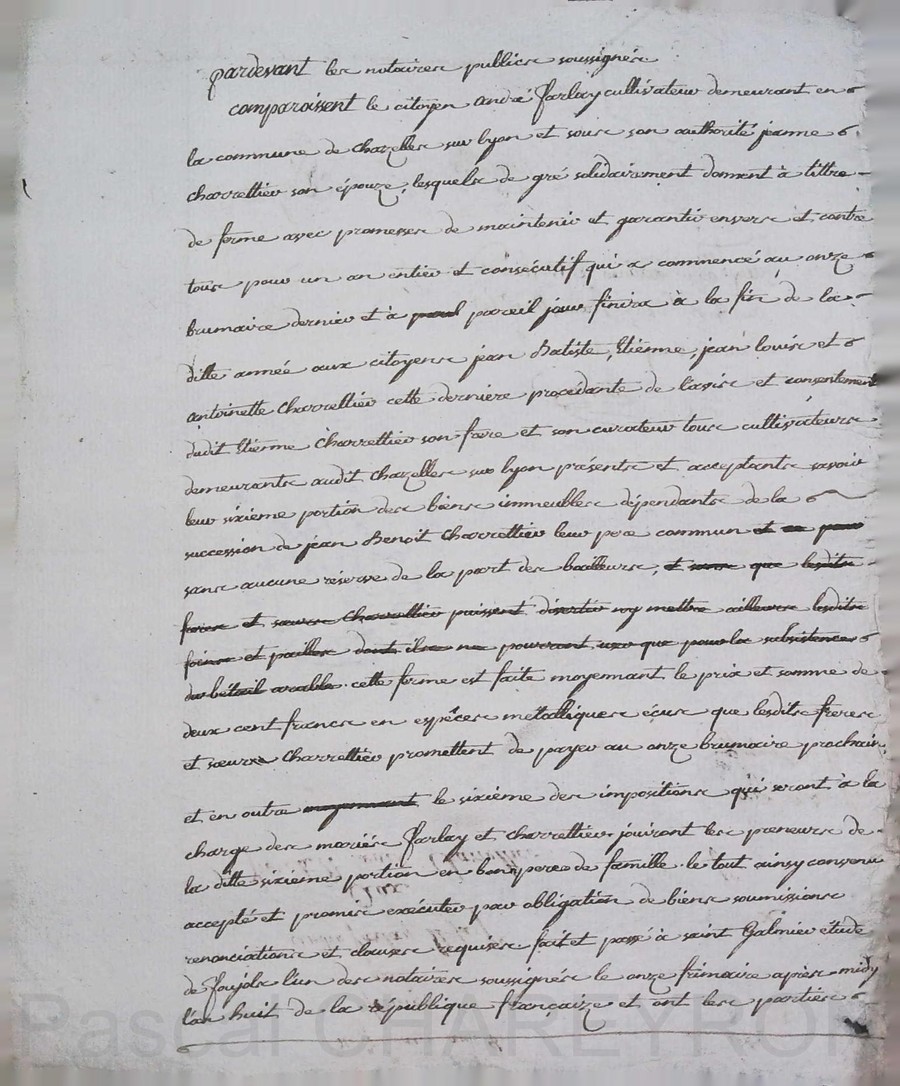 pardevant les notaires publics soussignés
comparoissent le citoyen andré farlay cultivateur demeurant en
la commune de Chazelles sur lyon et sous son authorité jeanne
charrettier son épouze, lesquels de gré solidairement donnent à tittre
de ferme avec promesses de maintenir et garantir envers et contre
tous pour un an entier et consécutif qui a commencé au onze
brumaire dernier et à pareil jour finira à la fin de la
ditte année aux citoyens jean Batiste, Etienne, jean louis et
antoinette Charrettier cette derniere procédante de l'avis et consentement
dudit Etienne Charrettier son frere et son curateur tous cultivateurs
demeurants audit Chazelles sur lyon présents et acceptants savoir
leur sixième portion des biens immeubles dépendants de la
succession de jean Benoit Charrettier leur pere commun et
sans aucune réserve de la part des bailleurs, et que lesdits
freres et soeurs Charrettier puissent divertir ny mettre ailleurs lesdits
foins et pailles dont ils ne pourront user que pour la subsistence
du bétail arable. cette ferme est faite moyennant le prix et somme de
deux cent francs en espèces metalliques écus que lesdits freres
et soeurs Charrettier promettent de payer au onze brumaire prochain,
et en outre moyennant le sixième des impositions qui seront à la
charge des mariés farlay et charrettier. jouiront les preneurs de
la ditte sixième portion en bons peres de famille. le tout ainsy convenu
accepté et promis exécuter par obligation de biens soumissions
renonciations et clauses requises fait et passé à saint Galmier étude
de foujols l'un des notaires soussignés le onze frimaire après midy
l'an huit de la république françaize et ont les parties
Pascal CHAREYRON